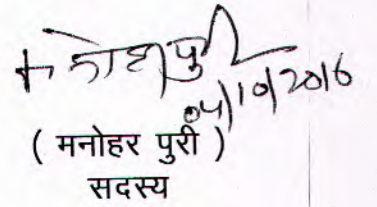 मनोहर पुरी
04/10/2016
( मनोहर पुरी )
सदस्य